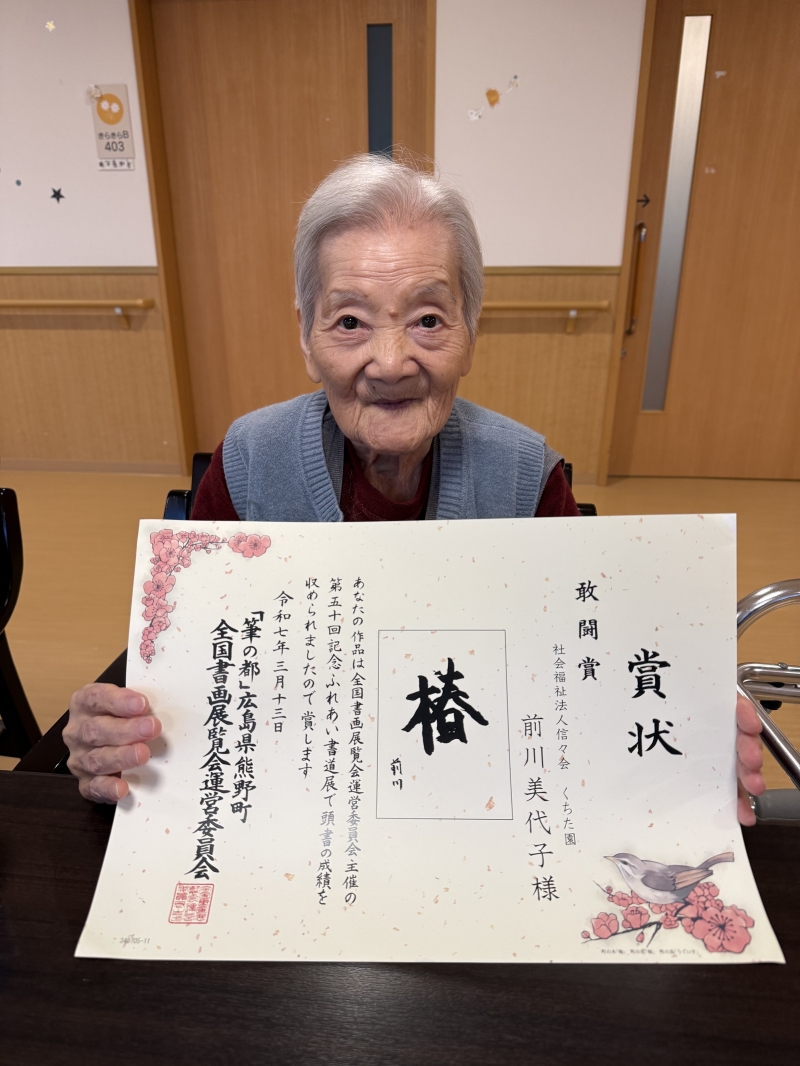 きらきらB
403
賞状
敢闘賞
社会福祉法人信々会 くちた園
前川美代子様
椿
前川
あなたの作品は全国書画展覧会運営委員会主催の
第五十回記念ふれあい書道展で頭書の成績を
収められましたので賞します
令和七年三月十三日
「筆の都」広島県熊野町
全国書画展覧会運営委員会